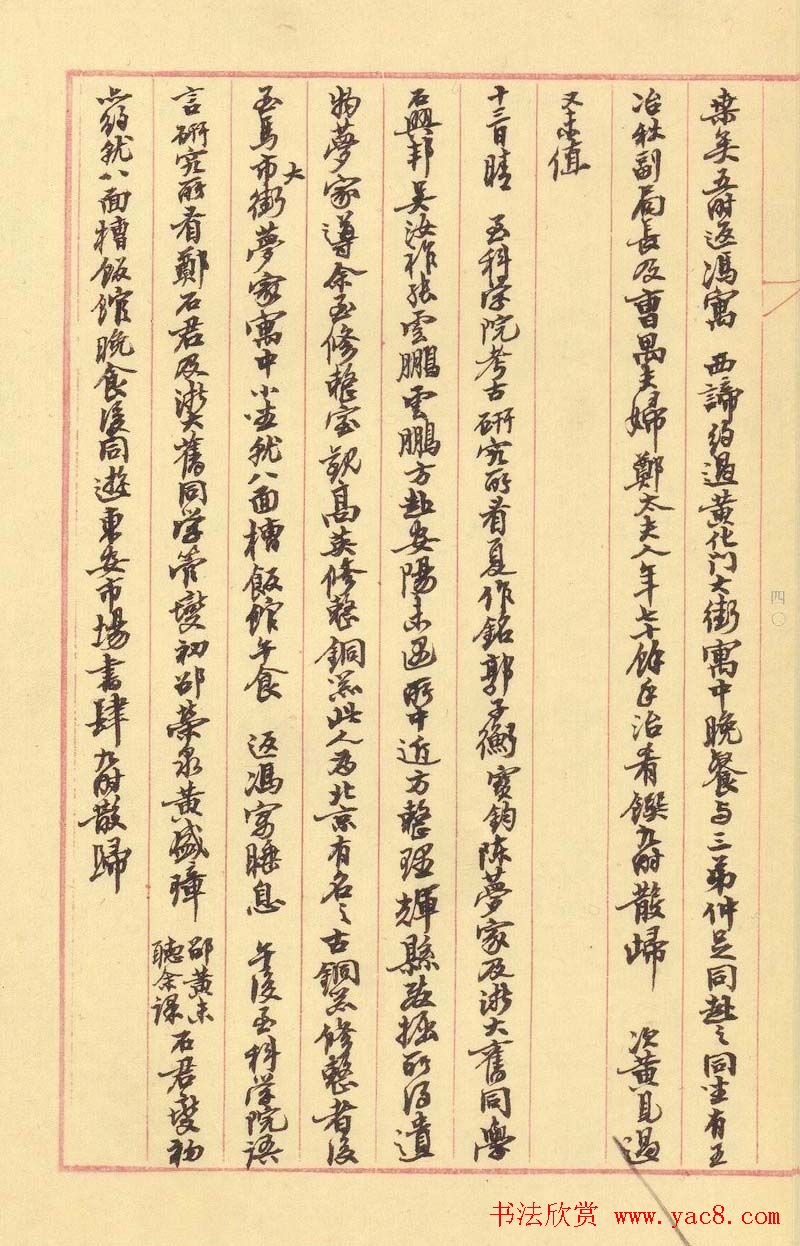 榘矣五时返馮寓　西諦约过黄化门大街寓中晚餐与三弟仲足同赴之同坐有王
冶秋副局長及曹禺夫婦鄭太夫人年七十餘手治肴饌九时散歸　次黄見過
又未值
十三日晴　至科学院考古研究所看夏作銘郭子衡寳鈞陈夢家及浙大舊同學
石興邦吴汝祚张雲鵬雲鵬方赴安陽未遇所中近方整理輝縣发掘所得遺
物夢家導余至修整室觀高英修整銅器此人为北京有名之古銅器修整者後
至馬市大街夢家寓中小坐就八面槽飯館午食　返馮寓睡息　午後至科学院语
言研究所看鄭石君及浙大舊同学管燮初邵荣芬黄盛璋邵黄未聽余课石君燮初
与约就八面槽飯館晚食後同遊東安市場書肆九时散歸
四〇
书法欣赏 www.yac8.com